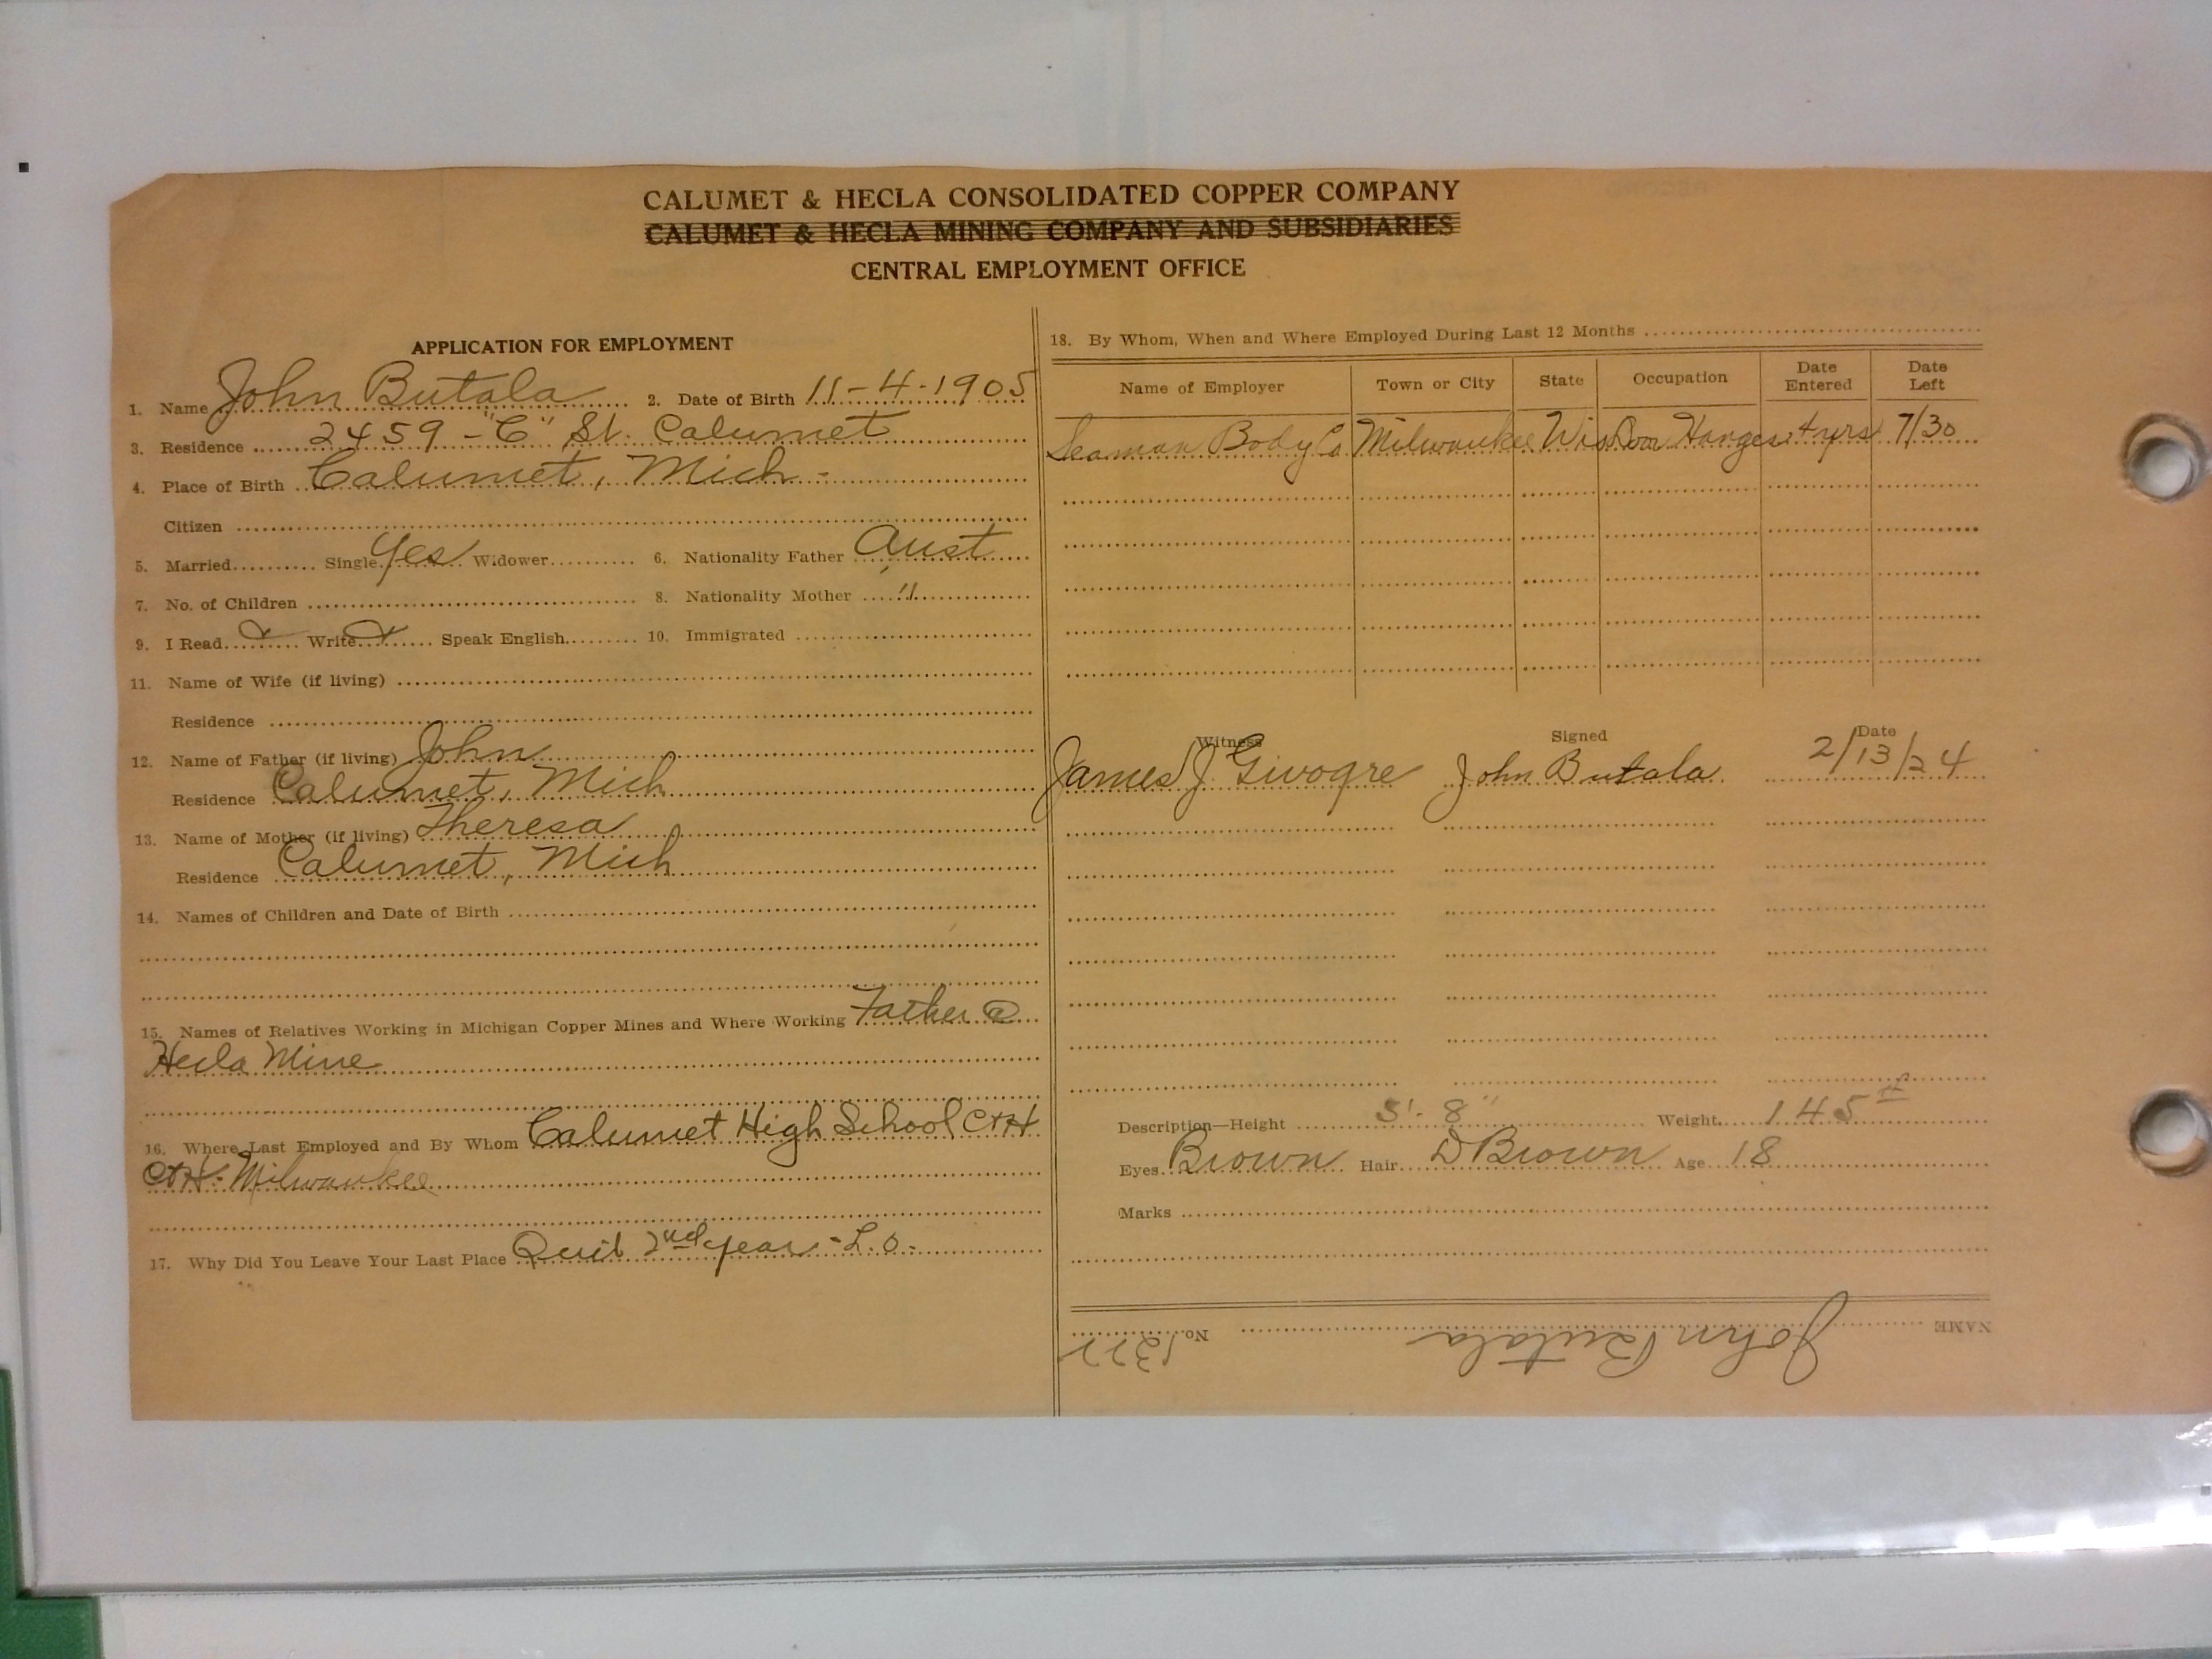 CALUMET & HECLA CONSOLIDATED COPPER COMPANY
CALUMET & HECLA MINING COMPANY AND SUBSIDIARIES
CENTRAL EMPLOYMENT OFFICE
APPLICATION FOR EMPLOYMENT
1. Name John Butala 2. Date of Birth 11-4-1905
3. Residence 2459 - "C" St. Calumet
4. Place of Birth Calumet, Mich -
Citizen
5. Married Single Yes Widower 6. Nationality Father Aust
7. No. of Children 8. Nationality Mother "
9. I Read x Write x Speak English 10. Immigrated
11. Name of Wife (if living)
Residence
12. Name of Father (if living) John
Residence Calumet, Mich
13. Name of Mother (if living) Theresa
Residence Calumet, Mich
14. Names of Children and Date of Birth
15. Names of Relatives Working in Michigan Copper Mines and Where Working Father @
Hecla Mine
16. Where Last Employed and By Whom Calumet High School C+H
C+H - Milwaukee
17. Why Did You Leave Your Last Place Quit 2nd year - L.O.
18. By Whom, When and Where Employed During Last 12 Months
Name of Employer Town or City State Occupation Date Entered Date Left
Seaman Body Co Milwaukee Wis Door Hanger 4 yrs 7/30
Witness Signed Date
James J. Givogre John Butala 2/13/24
Description—Height 5'-8" Weight 145#
Eyes Brown Hair D Brown Age 18
Marks
NAME John Butala No.